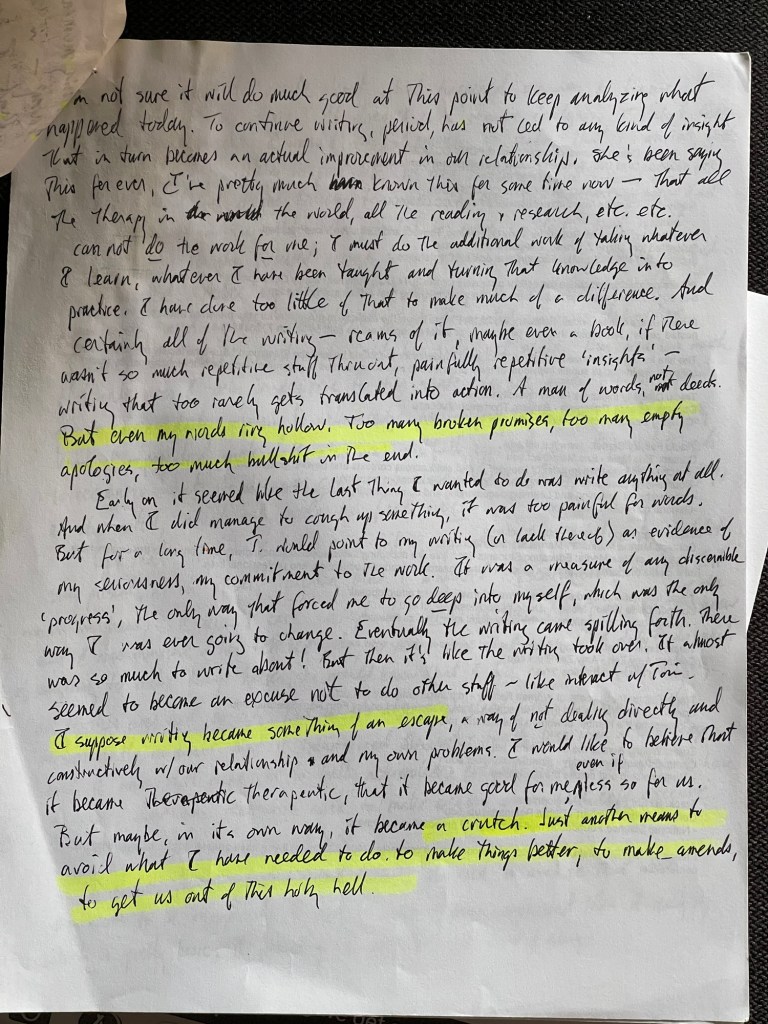 m not sure it will do much good at This point to keep analyzing what
happened today. To continue writing, period, has not led to any kind of insight
That in turn becomes an actual improvement in our relationship. She's been saying
This forever, I've pretty much known This for some time now — That all
The Therapy in the world, all The reading & research, etc. etc.
can not do the work for me; I must do The additional work of taking whatever
I learn, whatever I have been taught and turning That knowledge into
practice. I have done too little of That to make much of a difference. And
certainly all of The writing — reams of it, maybe even a book, if There
wasn't so much repetitive stuff Thruout, painfully repetitive 'insights' —
writing that too rarely gets translated into action. A man of words, not deeds.
But even my words ring hollow. Too many broken promises, too many empty
apologies, too much bullshit in The end.
Early on it seemed like the last Thing I wanted to do was write anything at all.
And when I did manage to cough up something, it was too painful for words.
But for a long time, I would point to my writing (or lack thereof) as evidence of
my seriousness, my commitment to The work. It was a measure of any discernible
'progress', The only way that forced me to go deep into myself, which was The only
way I was ever going to change. Eventually the writing came spilling forth. There
was so much to write about! But Then it's like The writing took over. It almost
seemed to become an excuse not to do other stuff ~ like interact w/
I suppose writing became something of an escape, a way of not dealing directly and
constructively w/ our relationship and my own problems. I would like to believe That
it became Therapeutic Therapeutic, that it became good for me, even if less so for us.
But maybe, in its own way, it became a crutch. Just another means to
avoid what I have needed to do. to make things better, to make amends,
to get us out of This holy hell.